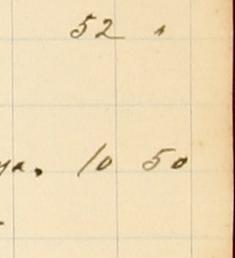 52 "
ya. 10 50